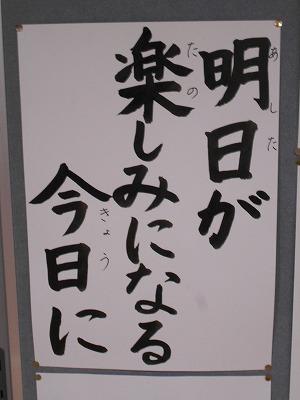 明日が
楽しみになる
今日に
あした
たの
きょう